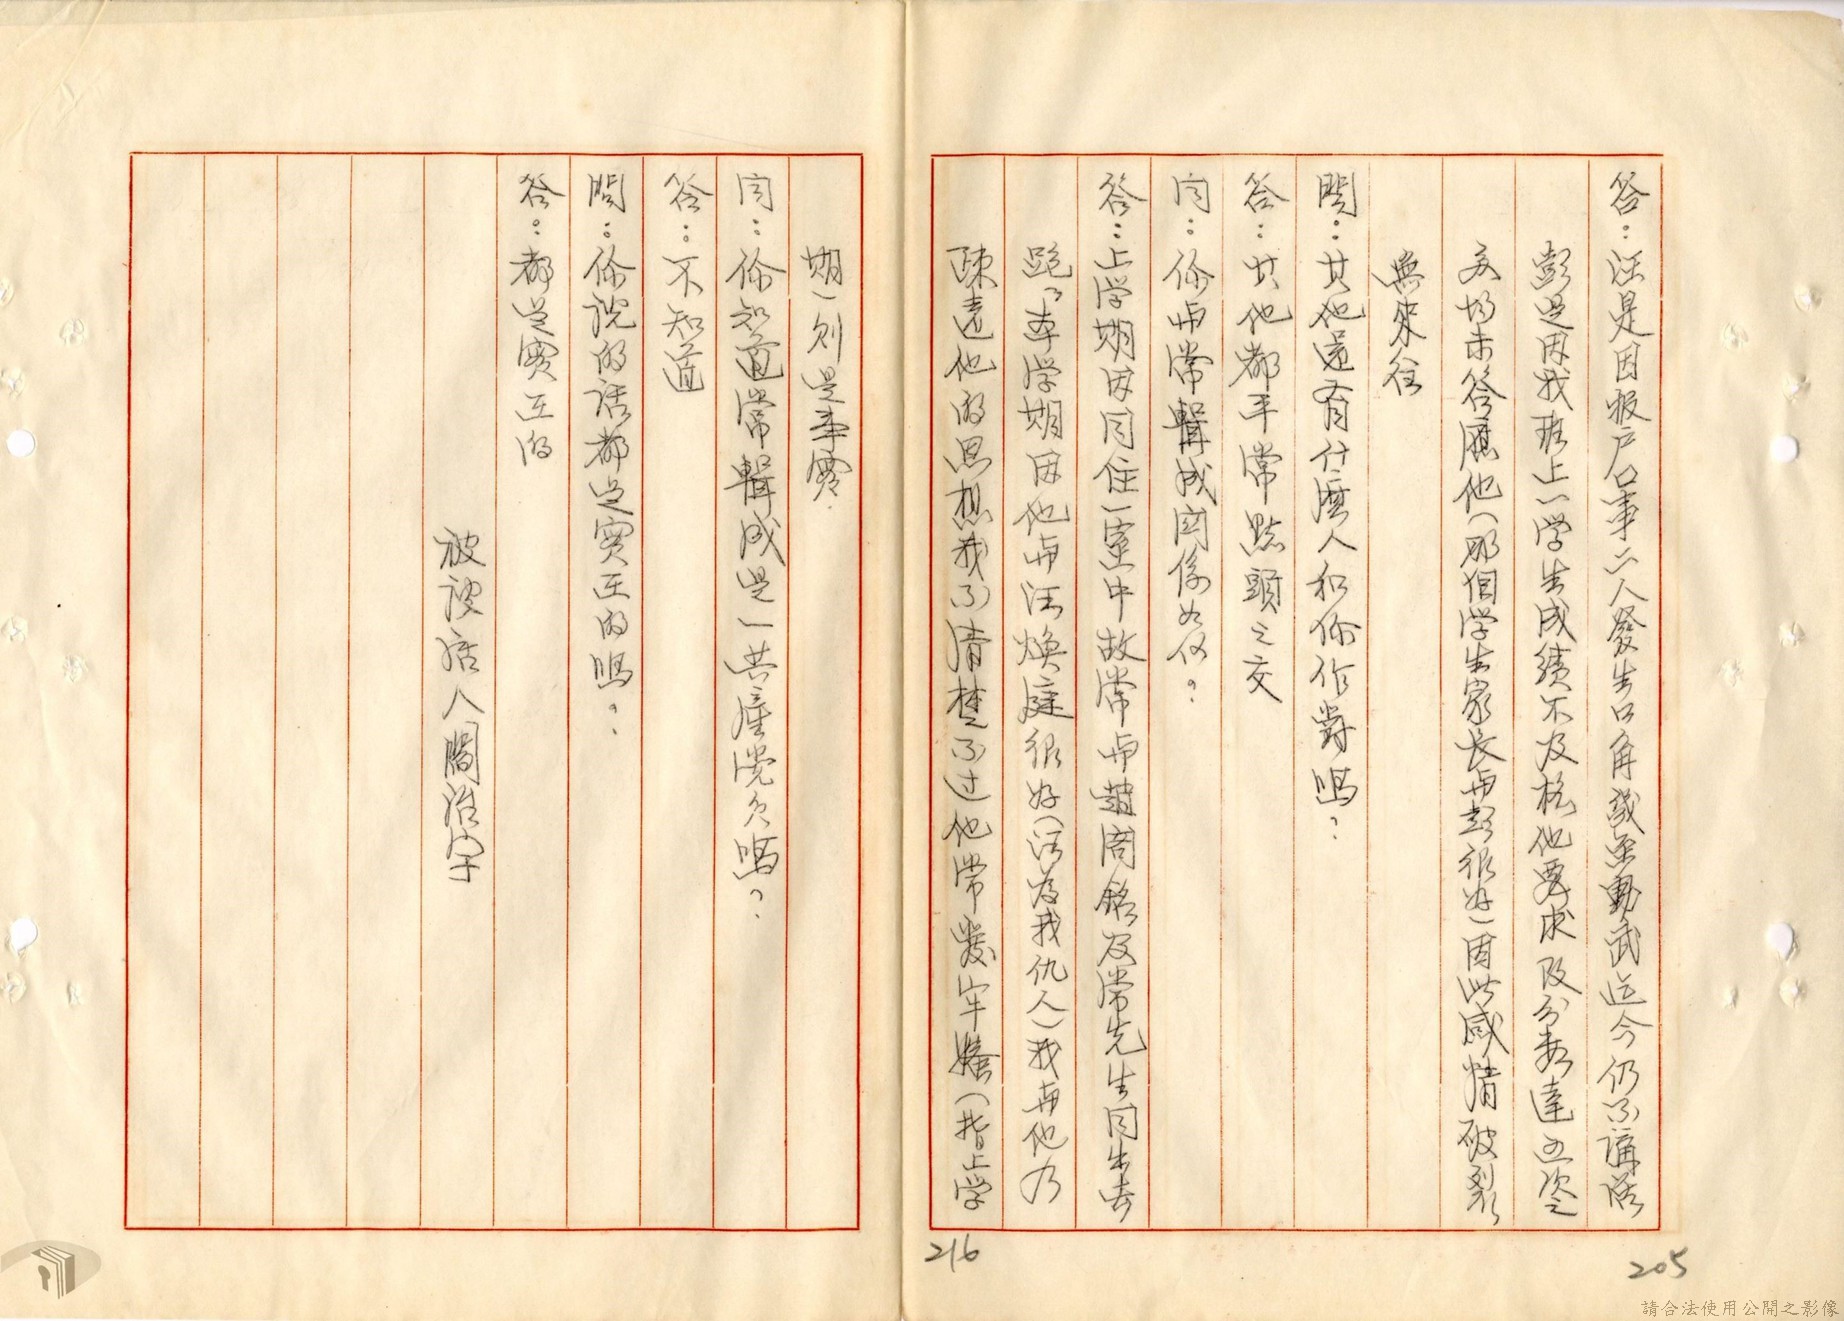 答：汪是因报户口事二人發生口角幾至動武迄今仍不講话
彭是因我班上一学生成績不及格他要求改分数達五次
之均未答應他（那個学生家长与彭很好）因此感情破裂
無來往
問：其他還有什麼人和你作對嗎？
答：其他都平常點頭之交
问：你与常輯成関係如何？
答：上学期因同住一室中故常与趙尚銘及常先生同出去
跑，本学期因他与汪焕庭很好（汪為我仇人）我与他乃
疎遠他的思想我不清楚不过他常發牢騷（指上学
期）則是事實．
问：你知道常輯成是一共產党员嗎？
答：不知道
問：你說的話都是實在的嗎？
答：都是實在的
被談话人閻浩宇
216
205
請合法使用公開之影像